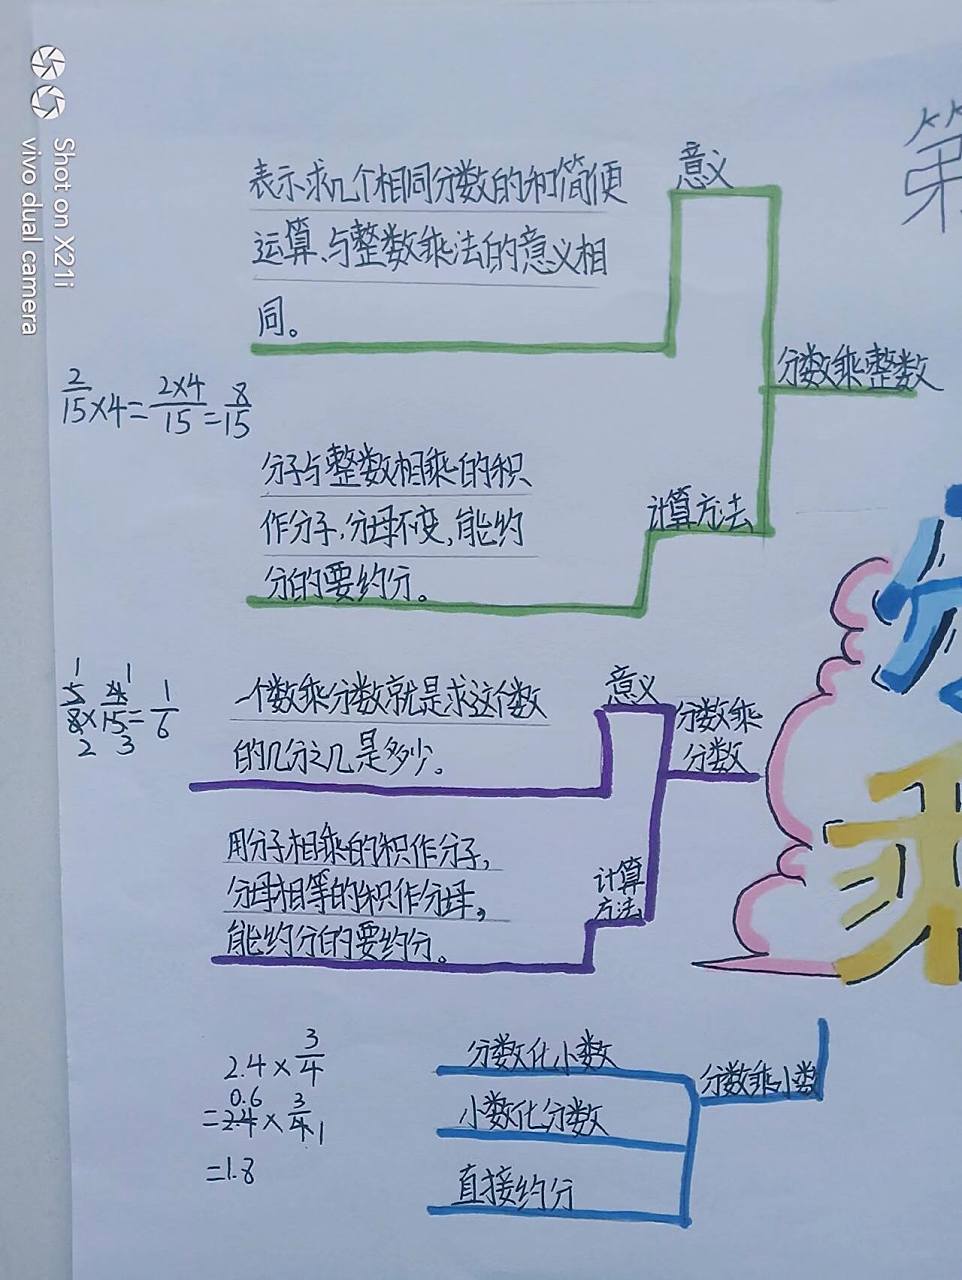 Shot on X21i
vivo dual camera
第
意义
表示求几个相同分数的和简便
运算、与整数乘法的意义相
同。
分数乘整数
2/15×4=2×4/15=8/15
分子与整数相乘的积
作分子,分母不变,能约
分的要约分。
计算方法
1 1
5/8×4/15=1/6
2 3
一个数乘分数就是求这个数
的几分之几是多少。
意义
分数乘
分数
用分子相乘的积作分子,
分母相等的积作分母,
能约分的要约分。
计算
方法
分
乘
2.4×3/4
0.6
=2.4×3/4 1
=1.8
分数化小数
小数化分数
直接约分
分数乘小数